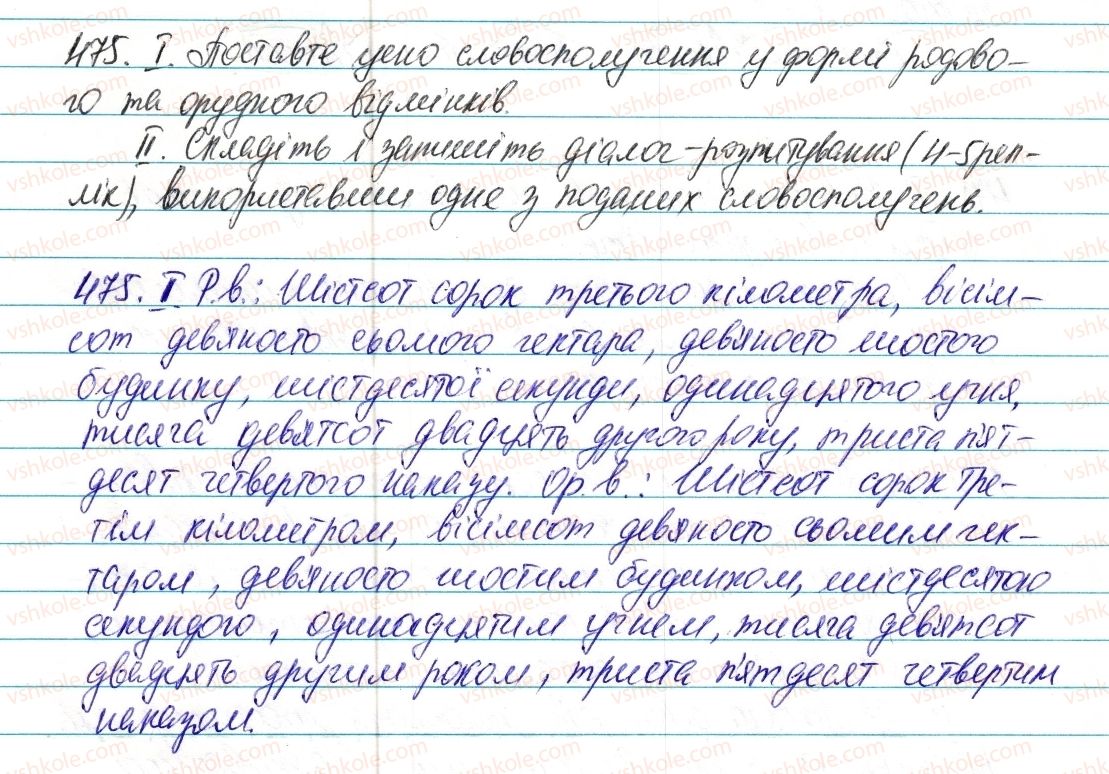 475. I. Поставте усно словосполучення у формі родово-
го та орудного відмінків.
II. Складіть і запишіть діалог-розпитування (4-5 реп-
лік), використавши одне з поданих словосполучень.
475. I Р.в.: Шістсот сорок третього кілометра, вісім-
сот дев'яносто сьомого гектара, дев'яносто шостого
будинку, шістдесятої секунди, одинадцятого учня,
тисяча дев'ятсот двадцять другого року, триста п'ят-
десят четвертого наказу. Ор.в.: Шістсот сорок тре-
тім кілометром, вісімсот дев'яносто сьомим гек-
таром, дев'яносто шостим будинком, шістдесятою
секундою, одинадцятим учнем, тисяча дев'ятсот
двадцять другим роком, триста п'ятдесят четвертим
наказом.